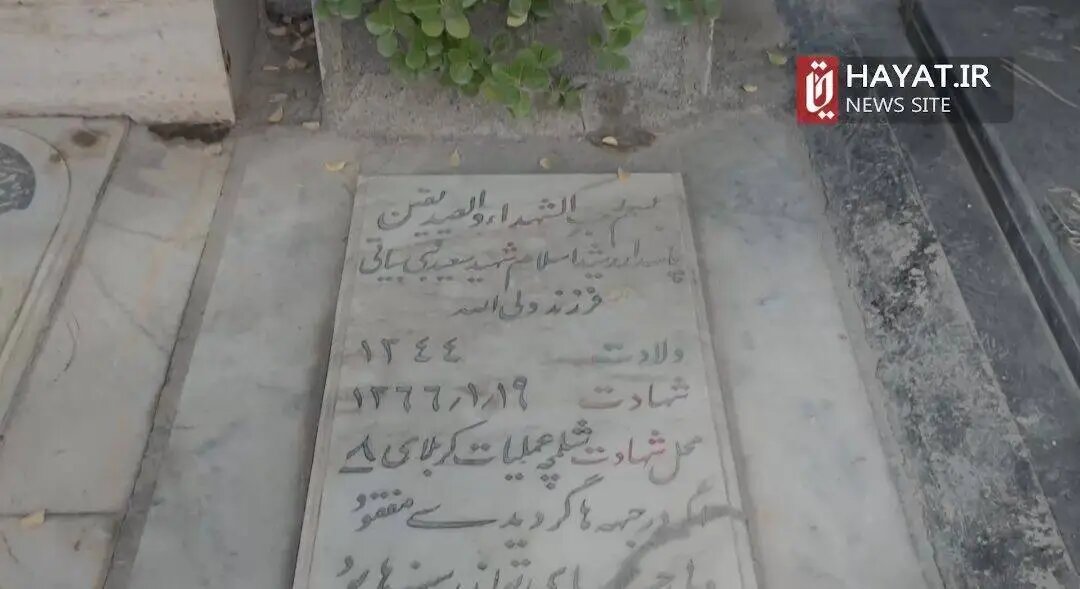 HAYAT.IR
NEWS SITE
بسم رب الشهداء و الصدیقین
پاسدار رشید اسلام شهید سعید بیاتی
فرزند ولی الله
ولادت ۱۳۴۴
شهادت ۱۳۶۶٫۱٫۱۹
محل شهادت شلمچه عملیات کربلای ۸
گر در جبهه ها گردیدے مفقود